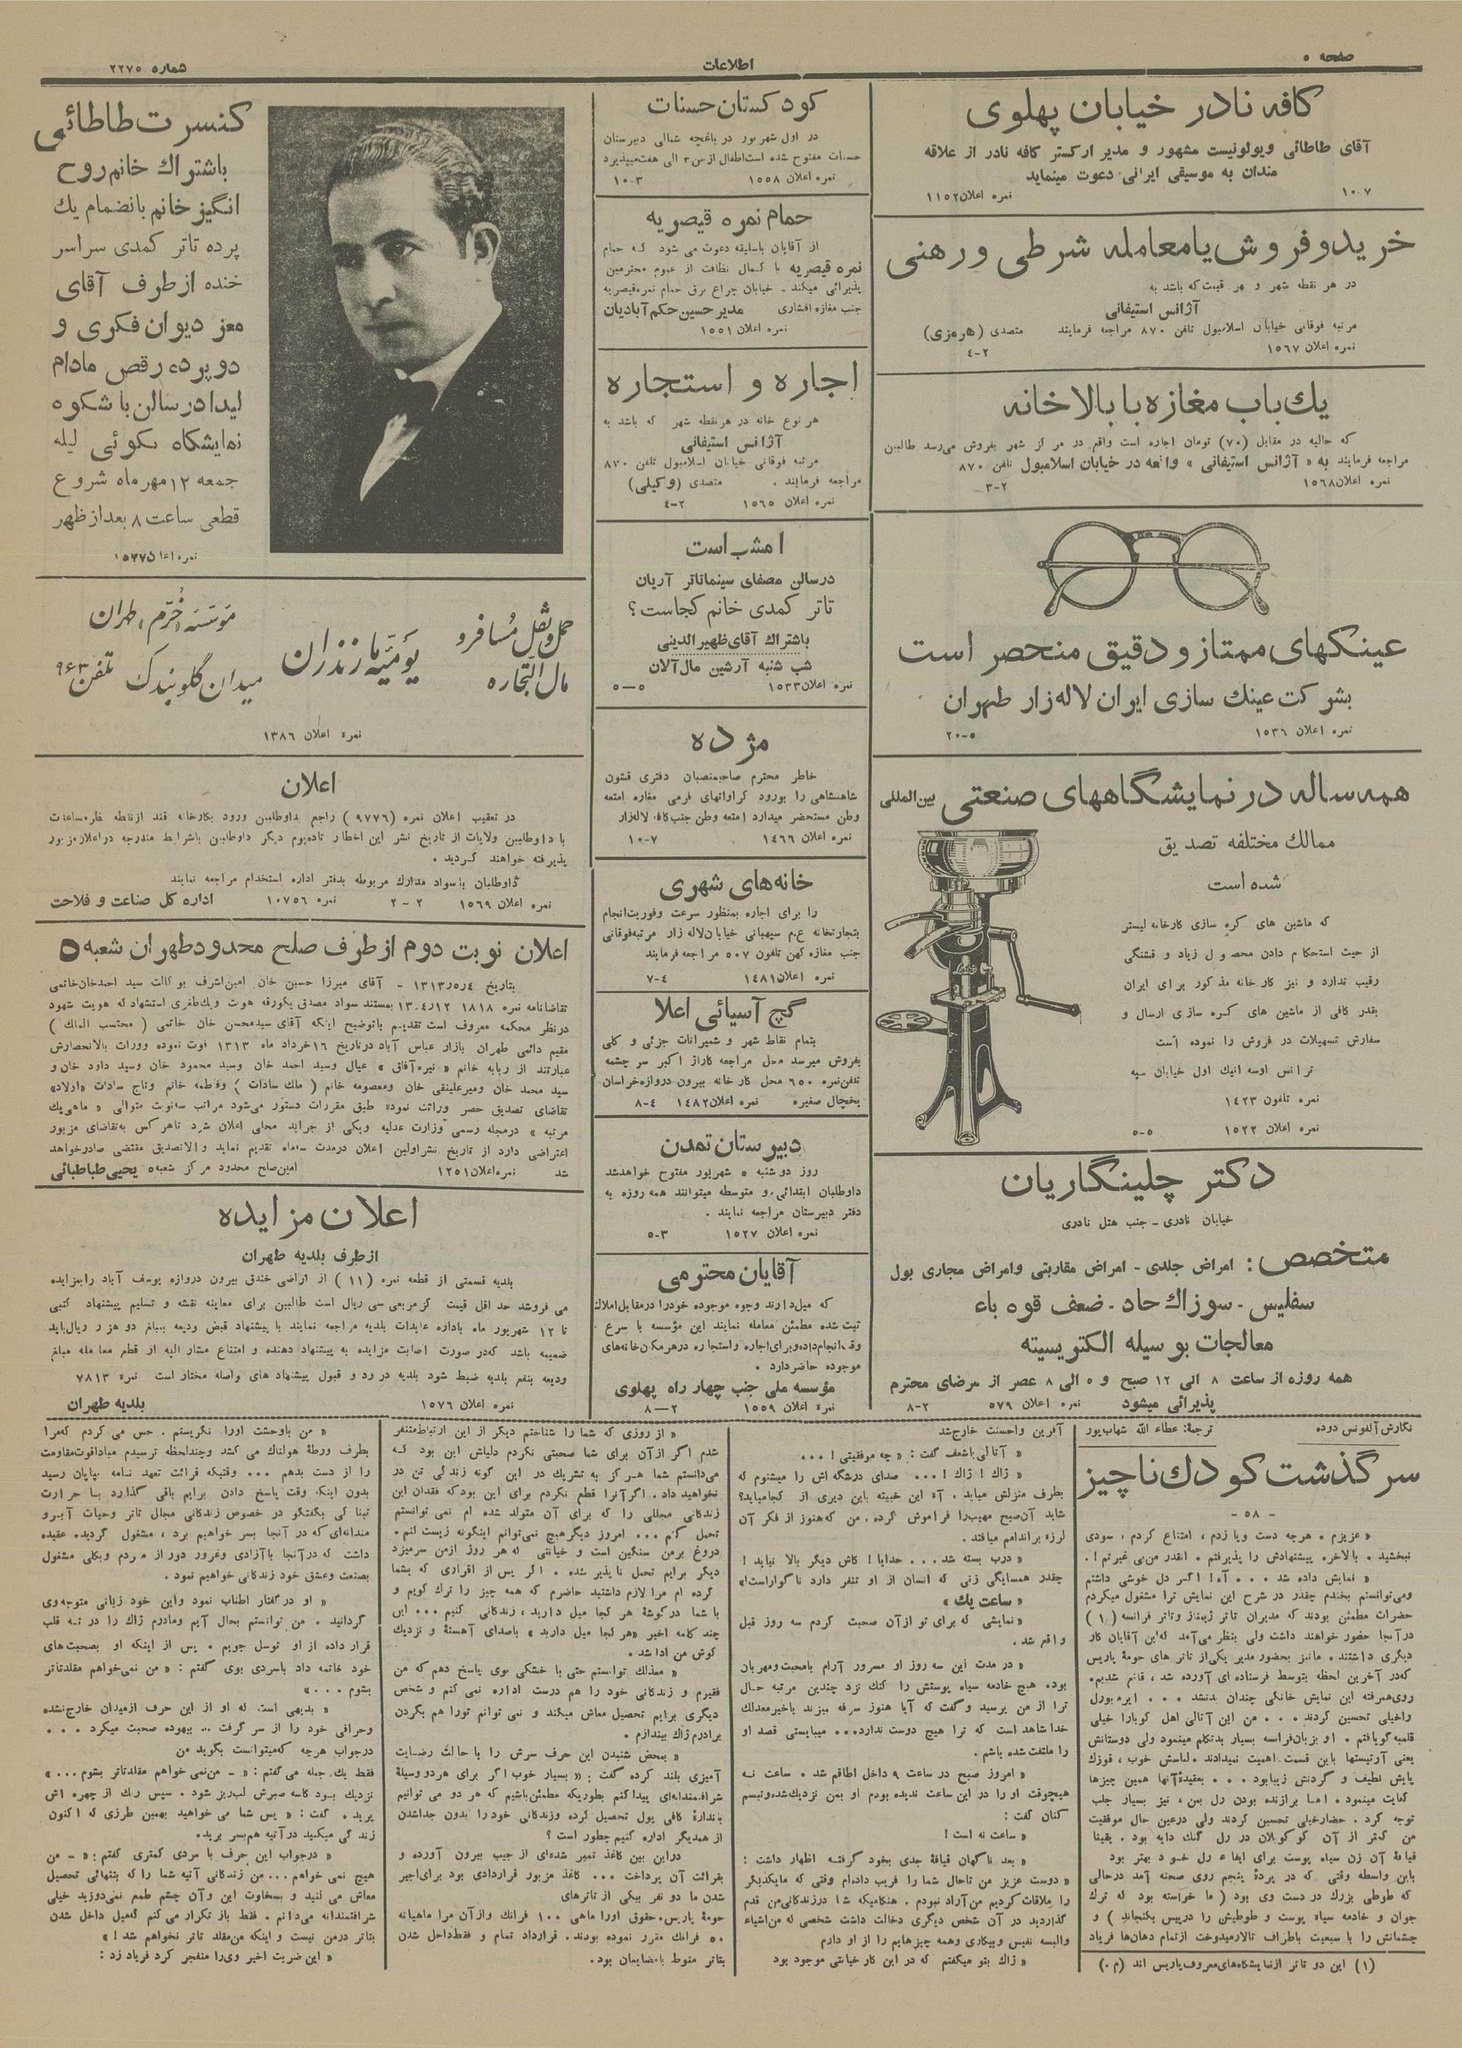 صفحه ۵
اطلاعات
شماره ۲۲۷۵
کافه نادر خیابان پهلوی
آقای طاطائی ویولونیست مشهور و مدیر ارکستر کافه نادر از علاقه
مندان به موسیقی ایرانی دعوت مینماید
۱۰-۷ نمره اعلان ۱۱۵۲
خرید و فروش یا معامله شرطی و رهنی
در هر نقطه شهر و بهر قیمت که باشد به
آژانس استیفانی
مرتبه فوقانی خیابان اسلامبول تلفن ۸۷۰ مراجعه فرمایند متصدی (هرمزی)
نمره اعلان ۱۵۶۷ ۴-۲
یك باب مغازه با بالاخانه
که حالیه در مقابل (۷۰) تومان اجاره است واقع در مرکز شهر بفروش می‌رسد طالبین
مراجعه فرمایند به « آژانس استیفانی » واقعه در خیابان اسلامبول تلفن ۸۷۰
نمره اعلان ۱۵۶۸ ۳-۲
عینکهای ممتاز و دقیق منحصر است
بشرکت عینك سازی ایران لاله‌زار طهران
نمره اعلان ۱۵۳۶ ۲۰-۵
همه ساله در نمایشگاههای صنعتی بین‌المللی
ممالك مختلفه تصدیق
شده است
که ماشین های کره سازی کارخانه لیستر
از حیث استحکام دادن محصول زیاد و قشنگی
رقیب ندارد و نیز کارخانه مذکور برای ایران
بقدر کافی از ماشین های کره سازی ارسال و
سفارش تسهیلات در فروش را نموده است
ترانس اوسه آنیك اول خیابان سپه
نمره تلفون ۱۴۲۳
نمره اعلان ۱۵۲۲ ۵-۵
دکتر چلینگاریان
خیابان نادری - جنب هتل نادری
متخصص: امراض جلدی - امراض مقاربتی و امراض مجاری بول
سفلیس - سوزاك حاد - ضعف قوه باء
معالجات بوسیله الکتریسیته
همه روزه از ساعت ۸ الی ۱۲ صبح و ۵ الی ۸ عصر از مرضای محترم
پذیرائی میشود نمره اعلان ۵۷۹ ۸-۲
کودکستان حسنات
در اول شهریور در باغچه شمالی دبیرستان
حسنات مفتوح شده است اطفال از سن ۳ الی هفت میپذیرد
نمره اعلان ۱۵۵۸ ۱۰-۳
حمام نمره قیصریه
از آقایان باسلیقه دعوت می شود که حمام
نمره قیصریه با کمال نظافت از عموم محترمین
پذیرائی میکند - خیابان چراغ برق حمام نمره قیصریه
جنب مغازه افشاری مدیر حسین حکم آبادیان
نمره اعلان ۱۵۵۱
اجاره و استجاره
هر نوع خانه در هر نقطه شهر که باشد به
آژانس استیفانی
مرتبه فوقانی خیابان اسلامبول تلفن ۸۷۰
مراجعه فرمایند . متصدی (وکیلی)
نمره اعلان ۱۵۶۵ ۴-۲
امشب است
در سالن مصفای سینما تاتر آریان
تاتر کمدی خانم کجاست؟
باشتراك آقای ظهیرالدینی
شب شنبه آرشین مال آلان
نمره اعلان ۱۵۳۳ ۵-۵
مژده
خاطر محترم صاحبمنصبان دفتری قشون
شاهنشاهی را بورود کراواتهای فرمی مغازه امتعه
وطن مستحضر میدارد امتعه وطن جنب کافه لاله‌زار
نمره اعلان ۱۴۶۶ ۱۰-۷
خانه‌های شهری
را برای اجاره بمنظور سرعت و فوریت انجام
بتجارتخانه ع.م سیهبانی خیابان لاله زار مرتبه فوقانی
جنب مغازه کهن تلفون ۵۰۷ مراجعه فرمایند
نمره اعلان ۱۴۸۱ ۷-۴
گچ آسیائی اعلا
بتمام نقاط شهر و شمیرانات جزئی و کلی
بفروش میرسد محل مراجعه کاراژ اکبر سر چشمه
تلفن نمره ۶۵۰ محل کارخانه بیرون دروازه خراسان
یخچال صغیره نمره اعلان ۱۴۸۲ ۸-۴
دبیرستان تمدن
روز دوشنبه ۵ شهریور مفتوح خواهد شد
داوطلبان ابتدائی و متوسطه میتوانند همه روزه به
دفتر دبیرستان مراجعه نمایند .
نمره اعلان ۱۵۲۷ ۵-۳
آقایان محترمی
که میل دارند وجوه موجوده خود را در مقابل املاك
ثبت شده مطمئن معامله نمایند این مؤسسه با سرع
وقت انجام داده و برای اجاره و استجاره در هر مکان خانه‌های
موجوده حاضر دارد .
مؤسسه ملی جنب چهار راه پهلوی
نمره اعلان ۱۵۵۹ ۸-۲
کنسرت طاطائی
باشتراك خانم روح
انگیز خانم بانضمام یك
پرده تاتر کمدی سراسر
خنده از طرف آقای
معز دیوان فکری و
دو پرده رقص مادام
لیدا در سالن با شکوه
نمایشگاه نکوئی لیله
جمعه ۱۲ مهر ماه شروع
قطعی ساعت ۸ بعد از ظهر
نمره اعلان ۱۵۷۷
حمل و نقل مسافر و
مال التجاره
یومیه مازندران
مؤسسه خرم ، طهران
میدان گلوبندك تلفن ۹۶۳
نمره اعلان ۱۳۸۶
اعلان
در تعقیب اعلان نمره (۹۷۷۶) راجع بداوطلبین ورود بکارخانه قند از نقطه نظر مساعات
با داوطلبین ولایات از تاریخ نشر این اخطار تا ده یوم دیگر داوطلبین باشرایط مندرجه در اعلان مزبور
پذیرفته خواهند گردید .
داوطلبان باسواد مدارك مربوطه بدفتر اداره استخدام مراجعه نمایند
نمره اعلان ۱۵۶۹ ۲-۲ نمره ۱۰۷۵۶ اداره کل صناعت و فلاحت
اعلان نوبت دوم از طرف صلح محدود طهران شعبه ۵
بتاریخ ۱۳۱۳ر۵ر۴ - آقای میرزا حسین خان امین اشرف بوکالت سید احمدخان خاتمی
تقاضانامه نمره ۱۸۱۸ بمستند سواد مصدق یکورقه هویت و یك طغری استشهاد که هویت شهود
در نظر محکمه معروف است تقدیم باتوضیح اینکه آقای سید محسن خان خاتمی ( محتسب الملك )
مقیم دائمی طهران بازار عباس آباد در تاریخ ۱۶ خرداد ماه ۱۳۱۳ فوت نموده وورات بالانحصارش
عبارتند از ربابه خانم « نیره آفاق » عیال و سید احمد خان و سید محمود خان و سید داود خان و
سید محمد خان و میرعلینقی خان و معصومه خانم ( ملك سادات ) و فاطمه خانم و تاج سادات «اولاد»
تقاضای تصدیق حصر وراثت نموده طبق مقررات دستور می‌شود مراتب سه نوبت متوالی « ماهی یك
مرتبه » در مجله رسمی وزارت عدلیه و یکی از جراید محلی اعلان شود تا هر کس به تقاضای مزبور
اعتراضی دارد از تاریخ نشر اولین اعلان در مدت سه ماه تقدیم نماید و الا تصدیق مقتضی صادر خواهد
شد نمره اعلان ۱۲۵۱ امین صلح محدود مرکز شعبه ۵ یحیی طباطبائی
اعلان مزایده
از طرف بلدیه طهران
بلدیه قسمتی از قطعه نمره (۱۱) از اراضی خندق بیرون دروازه یوسف آباد را بمزایده
می فروشد حد اقل قیمت گز مربعی سی ریال است طالبین برای معاینه نقشه و تسلیم پیشنهاد کتبی
تا ۱۲ شهریور ماه باداره عایدات بلدیه مراجعه نمایند با پیشنهاد قبض ودیعه بمبلغ دو هزار ریال باید
ضمیمه باشد که در صورت اصابت مزایده به پیشنهاد دهنده و امتناع مشار الیه از قطع معامله مبلغ
ودیعه بنفع بلدیه ضبط شود بلدیه در رد و قبول پیشنهاد های واصله مختار است نمره ۷۸۱۳
نمره اعلان ۱۵۷۶ بلدیه طهران
نگارش آلفونس دوده ترجمهٔ: عطاء الله شهاب‌پور
سرگذشت کودك ناچیز
- ۵۸ -
« عزیزم . هرچه دست و پا زدم ، امتناع کردم ، سودی
نبخشید . بالاخره پیشنهادش را پذیرفتم . انقدر من بی غیرتم !.
« نمایش داده شد . . . آه! اگر دل خوشی داشتم
و می‌توانستم بخندم چقدر در شرح این نمایش ترا مشغول میکردم
حضرات مطمئن بودند که مدیران تاتر ژیمناز و تاتر فرانسه (۱)
در آنجا حضور خواهند داشت ولی بنظر می‌آمد که این آقایان کار
دیگری داشتند . مانیز بحضور مدیر یکی از تاتر های حومهٔ پاریس
که در آخرین لحظه بتوسط فرستاده ای آورده شد ، قانع شدیم.
روی همرفته این نمایش خانگی چندان بد نشد . . . ایرمابورل
را خیلی تحسین کردند . . . من این آتالی اهل کوبا را خیلی
قلمبه گو یافتم . او بزبان فرانسه بسیار بد تکلم مینمود ولی دوستانش
یعنی آرتیستها باین قسمت اهمیت نمیدادند . لباسش خوب ، قوزك
پایش لطیف و گردنش زیبا بود . . . بعقیدهٔ آنها همین چیزها
کفایت مینمود . اما برازنده بودن رل بمن ، نیز بسیار جلب
توجه کرد . حضار خیلی تحسین کردند ولی در عین حال موفقیت
من کمتر از آن کوکوبلان در رل گنك دایه بود . یقینا
قیافهٔ آن زن سیاه پوست برای ایفاء رل خود بهتر بود
باین واسطه وقتی که در پردهٔ پنجم روی صحنه آمد در حالی
که طوطی بزرك در دست وی بود ( ما خواسته بود که ترك
جوان و خادمه سیاه پوست و طوطیش را در پیس بگنجاند ) و
چشمانش را با سبعیت باطراف تالار میدوخت از تمام دهان‌ها فریاد
(۱) این دو تاتر از نمایشگاه‌های معروف پاریس اند (م.)
آفرین و احسنت خارج شد
« آتالی باشعف گفت : « چه موفقیتی ! . . .
« ژاك ! ژاك ! . . . صدای درشگه اش را میشنوم که
بطرف منزلش میاید . آه این خبیثه باین دیری از کجا میاید؟
شاید آن صبح مهیب را فراموش کرده . من که هنوز از فکر آن
لرزه براندامم میافتد .
« درب بسته شد . . . خدایا ! کاش دیگر بالا نیاید !
چقدر همسایگی زنی که انسان از او تنفر دارد ناگوار است!»
« ساعت یك »
« نمایشی که برای تو از آن صحبت کردم سه روز قبل
واقع شد .
« در مدت این سه روز او مسرور آرام بامحبت و مهربان
بود. هیچ خادمه سیاه پوستش را کتك نزد چندین مرتبه حال
ترا از من پرسید و گفت که آیا هنوز سرفه میزند یا خیر معذلك
خدا شاهد است که ترا هیچ دوست ندارد... میبایستی قصد او
را ملتفت شده باشم .
« امروز صبح در ساعت ۹ داخل اطاقم شد . ساعت نه
هیچوقت او را در این ساعت ندیده بودم او بمن نزدیك شده و تبسم
کنان گفت :
« ساعت نه است !
« بعد ناگهان قیافهٔ جدی بخود گرفته اظهار داشت :
« دوست عزیز من تا حال شما را فریب دادام وقتی که ما یکدیگر
را ملاقات کردیم من آزاد نبودم . هنگامیکه شا در زندگانی من قدم
گذاردید در آن شخص دیگری دخالت داشت شخصی که من اشیاء
و البسه نفیس و بیکاری و همه چیزهایم را از او دارم
« ژاك بتو میگفتم که در این کار خیانتی موجود بود
« از روزی که شما را شناختم دیگر از این ارتباط متنفر
شدم اگر از آن برای شما صحبتی نکردم دلیلش این بود که
می‌دانستم شما هرگز به تشریك در این گونه زندگی تن در
نخواهید داد . اگر آنرا قطع نکردم برای این بود که فقدان این
زندگانی مجللی را که برای آن متولد شده ام نمی توانستم
تحمل کنم ... امروز دیگر هیچ نمی‌توانم اینگونه زیست کنم .
دروغ برمن سنگین است و خیانتی که هر روز ازمن سرمیزد
دیگر برایم تحمل ناپذیر شده . اگر پس از اقراری که بشما
کرده ام مرا لازم داشتید حاضرم که همه چیز را ترك گویم و
با شما در گوشهٔ هر کجا میل دارید ، زندگانی کنیم . . . این
چند کلمه اخیر « هر کجا میل دارید » باصدای آهسته و نزدیك
گوش من ادا شد .
« معذلك توانستم حتی با خشکی بوی پاسخ دهم که من
فقیرم و زندگانی خود را هم درست اداره نمی کنم و شخص
دیگری برایم تحصیل معاش میکند و نمی توانم تو را هم بگردن
برادرم ژاك بیندازم .
« بمحض شنیدن این حرف سرش را با حالت رضایت
آمیزی بلند کرده گفت : « بسیار خوب اگر برای هر دو وسیلهٔ
شرافتمندانه‌ای پیدا کنم بطوریکه مطمئن باشیم که هر دو می توانیم
باندازهٔ کافی پول تحصیل کرده و زندگانی خود را بدون جدا شدن
از همدیگر اداره کنیم چطور است ؟
در این بین کاغذ تمبر شده‌ای از جیب بیرون آورده و
بقرائت آن پرداخت ... کاغذ مزبور قراردادی بود برای اجیر
شدن ما دو نفر بیکی از تاترهای
حومهٔ پاریس. حقوق او را ماهی ۱۰۰ فرانك و از آن مرا ماهیانه
۵۰ فرانك مقرر نموده بودند. قرارداد تمام و فقط داخل شدن
بتاتر منوط بامضایمان بود.
« من باوحشت او را نگریستم . حس می کردم که مرا
بطرف ورطهٔ هولناك می کشد و چند لحظه ترسیدم مبادا قوت مقاومت
را از دست بدهم ... وقتیکه قرائت تعهد نامه بپایان رسید
بدون اینکه وقت پاسخ دادن برایم باقی گذارد با حرارت
تبناکی بگفتگو در خصوص زندگانی مجال تاتر و حیات آبرو
مندانه‌ای که در آنجا بسر خواهیم برد ، مشغول گردید. عقیده
داشت که در آنجا باآزادی و غرور دور از مردم و بکلی مشغول
بصنعت و عشق خود زندگانی خواهیم نمود .
« او در گفتار اطناب نمود و این خود زیانی متوجه وی
گردانید . من توانستم بحال آیم و مادرم ژاك را در ته قلب
قرار داده از او توسل جویم . پس از اینکه او بصحبت‌های
خود خاتمه داد باسردی بوی گفتم : « من نمی‌خواهم مقلد تاتر
بشوم ...»
« بدیهی است که او از این حرف از میدان خارج نشده
و حرافی خود را از سر گرفت ... بیهوده صحبت میکرد . . .
در جواب هرچه که میتوانست بگوید من
فقط یك جمله می گفتم : « - من نمی خواهم مقلد تاتر بشوم . . . »
نزدیك بود کاسه صبرش لبریز شود . سپس رنك از چهره اش
پرید . گفت : « پس شما می خواهید بهمین طرزی که اکنون
زندگی میکنید در آتیه هم بسر برید.
« در جواب این حرف با سردی کمتری گفتم : « - من
هیچ نمی خواهم ... من زندگانی آتیه شما را که بتنهائی تحصیل
معاش می کنید و بسخاوت این و آن چشم طمع نمی‌دوزید خیلی
شرافتمندانه می‌دانم . فقط باز تکرار می کنم که میل داخل شدن
بتاتر درمن نیست و اینکه من مقلد تاتر نخواهم شد ! »
« این ضربت اخیر وی‌را منفجر کرد فریاد زد :